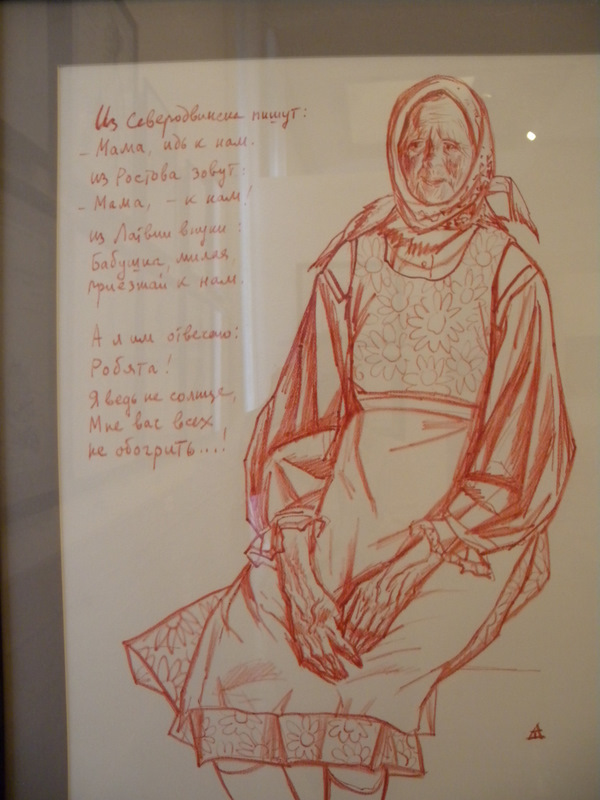 Из Северодвинска пишут:
– Мама, идь к нам.
из Ростова зовут:
– Мама, – к нам!
из Латвии внуки:
Бабушка, милая,
приезжай к нам.
А я им отвечаю:
Робята!
Я ведь не солнце,
Мне вас всех
не обогрить...!